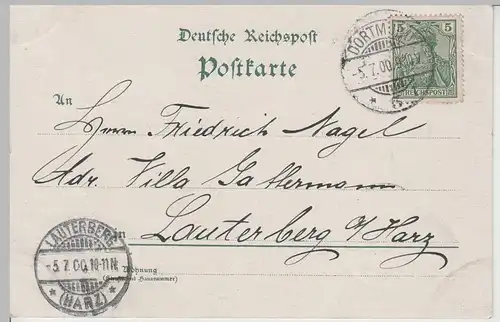 Deutsche Reichspost
Postkarte
DORTMUND
-5.7.00.
5 5
REICHSPOST
An
Herrn Friedrich Nagel
Adr. Villa Gattermann
in Lauterberg a/Harz
LAUTERBERG
-5.7.00.10-11N.
(HARZ)
Wohnung
(Straße und Hausnummer)